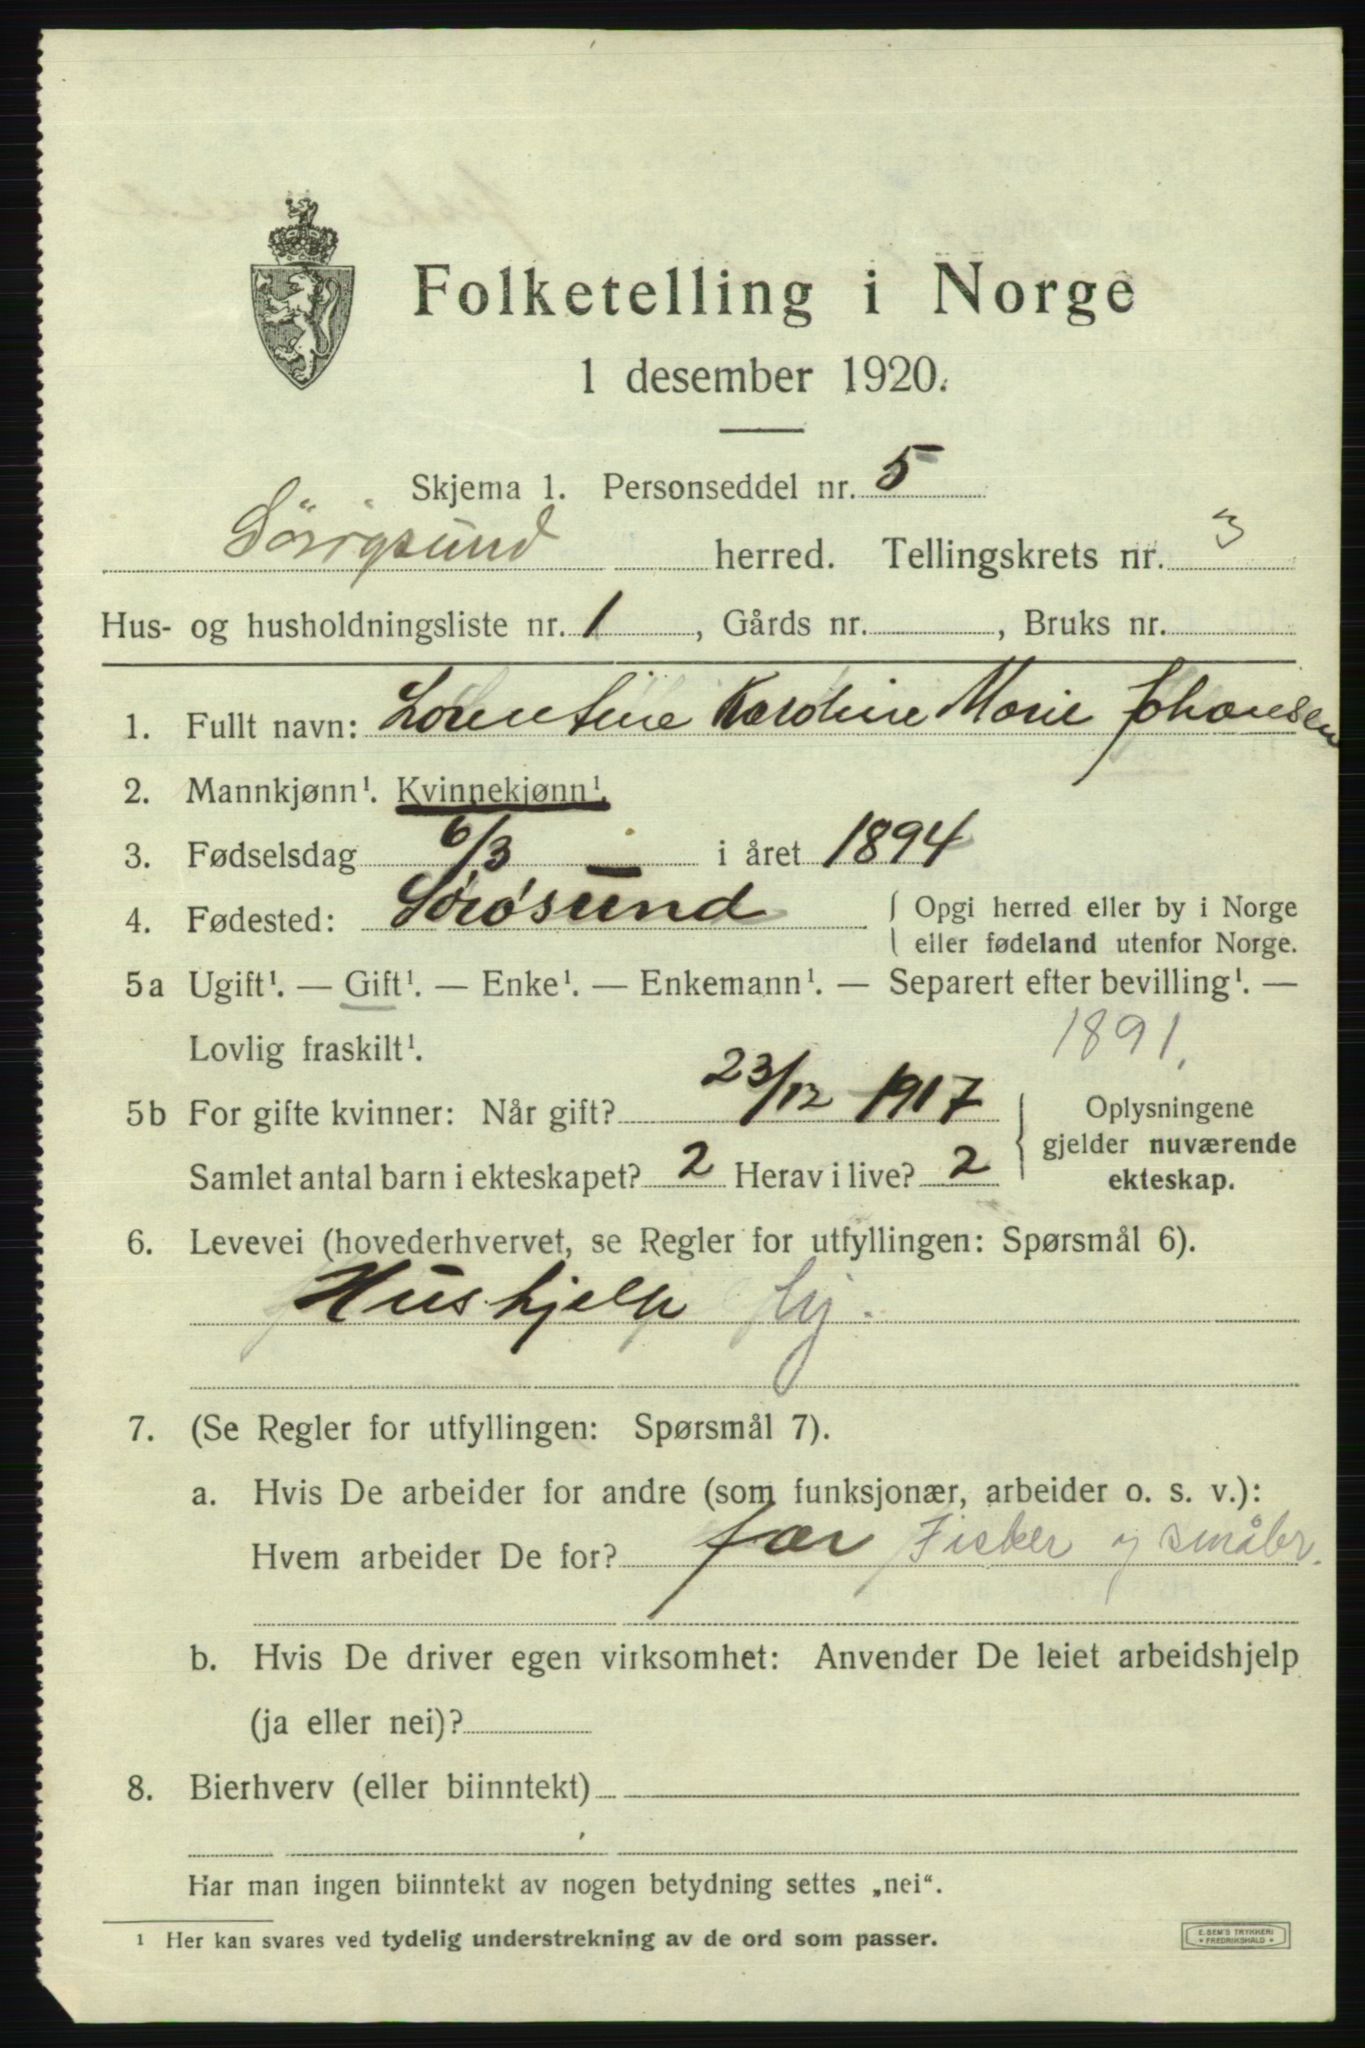 Folketelling i Norge
1 desember 1920.
Skjema 1. Personseddel nr. 5
herred. Tellingskrets nr. 3
Hus- og husholdningsliste nr. 1, Gårds nr. , Bruks nr.
1. Fullt navn: Lorentine Karoline Marie Johansen
2. Mannkjønn¹. Kvinnekjønn¹.
3. Fødselsdag 6/3 i året 1894
4. Fødested: Sørøsund { Opgi herred eller by i Norge
eller fødeland utenfor Norge.
5a Ugift¹. — Gift¹. — Enke¹. — Enkemann¹. — Separert efter bevilling¹. —
Lovlig fraskilt¹. 1891.
5b For gifte kvinner: Når gift? 23/12 1917 { Oplysningene
gjelder nuværende
Samlet antal barn i ekteskapet? 2 Herav i live? 2 ekteskap.
6. Levevei (hovederhvervet, se Regler for utfyllingen: Spørsmål 6).
Hushjelp
7. (Se Regler for utfyllingen: Spørsmål 7).
a. Hvis De arbeider for andre (som funksjonær, arbeider o. s. v.):
Hvem arbeider De for? far Fisker og småbr.
b. Hvis De driver egen virksomhet: Anvender De leiet arbeidshjelp
(ja eller nei)?
8. Bierhverv (eller biinntekt)
Har man ingen biinntekt av nogen betydning settes „nei“.
¹ Her kan svares ved tydelig understrekning av de ord som passer.
E. SEM'S TRYKKERI
* FREDRIKSHALD *